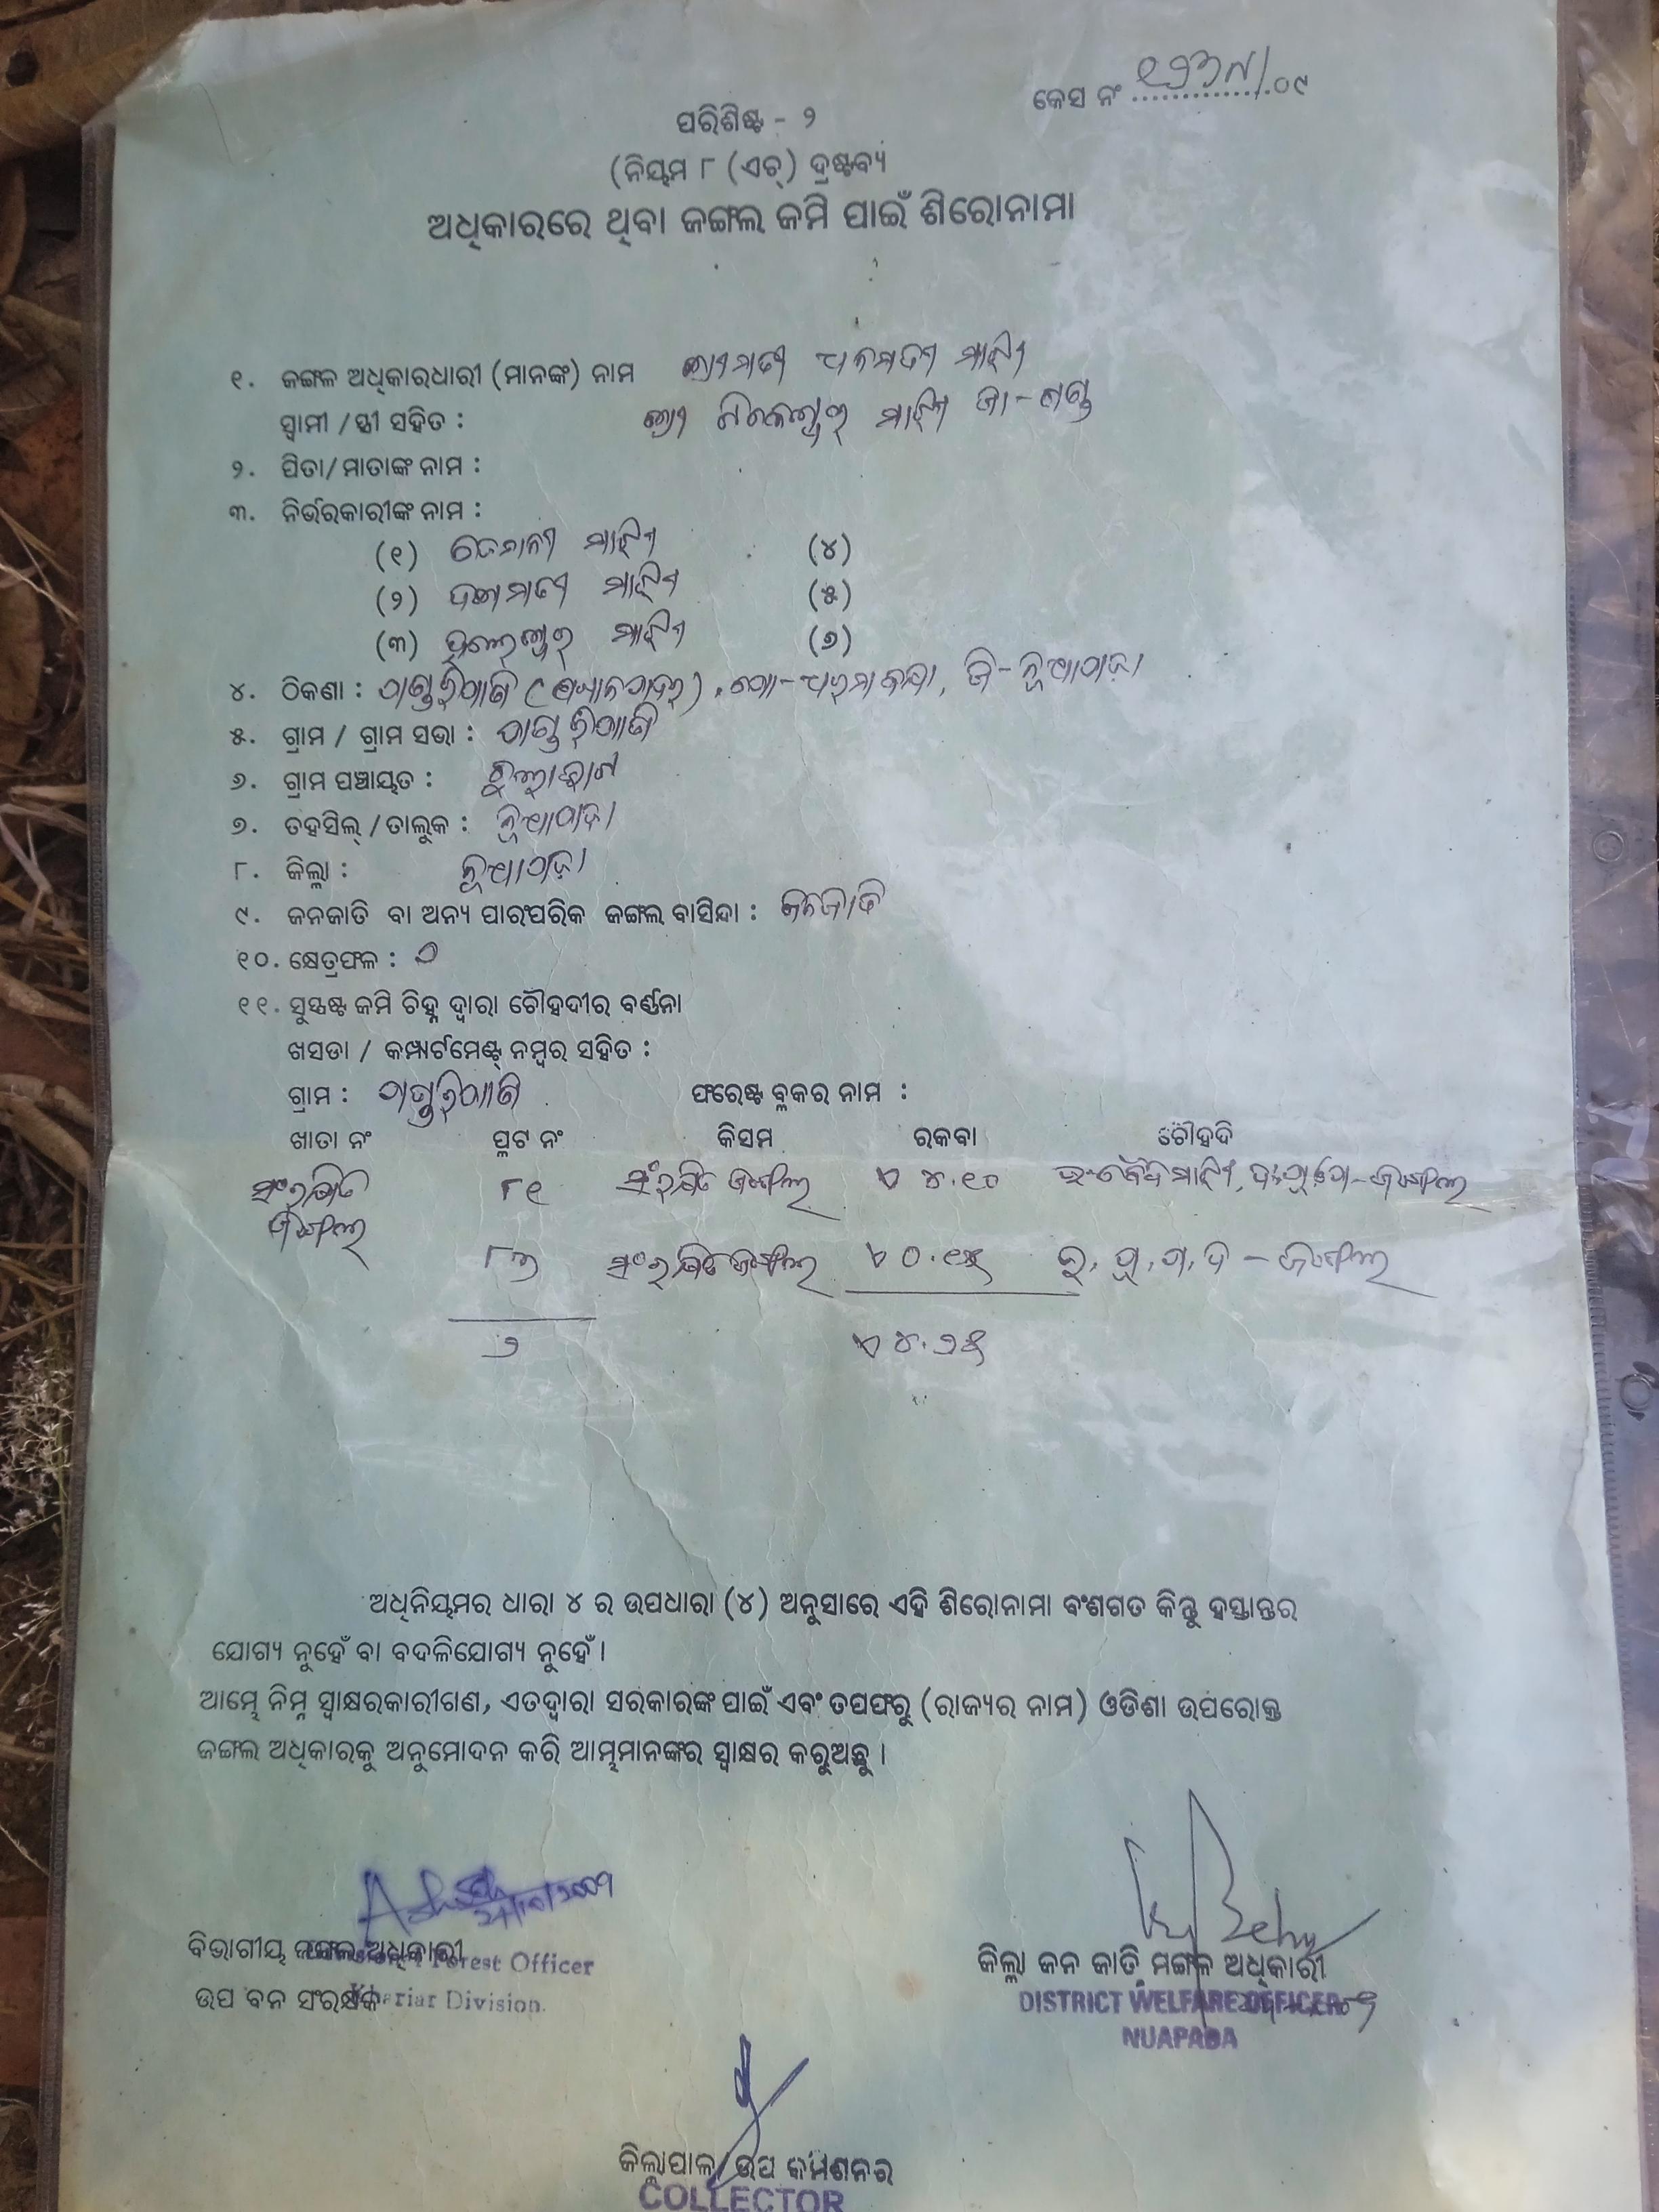 କେସ ନଂ ୧୨୩୩/୦୯
ପରିଶିଷ୍ଟ - ୨
(ନିୟମ ୮ (ଏଚ୍) ଦ୍ରଷ୍ଟବ୍ୟ
ଅଧିକାରରେ ଥିବା ଜଙ୍ଗଲ ଜମି ପାଇଁ ଶିରୋନାମା
୧. ଜଙ୍ଗଳ ଅଧିକାରଧାରୀ (ମାନଙ୍କ) ନାମ ଶ୍ରୀମତୀ ଧନମତୀ ମାଝୀ
ସ୍ୱାମୀ / ସ୍ତ୍ରୀ ସହିତ : ଶ୍ରୀ ମାଝୀ ଜା - ଗଣ୍ଡ
୨. ପିତା/ମାତାଙ୍କ ନାମ :
୩. ନିର୍ଭରକାରୀଙ୍କ ନାମ :
(୧) ମାଝୀ (୪)
(୨) ଦଶମତୀ ମାଝୀ (୫)
(୩) ମାଝୀ (୬)
୪. ଠିକଣା : ପୋ-ଧରମବନ୍ଧା, ଜି-ନୂଆପଡ଼ା
୫. ଗ୍ରାମ / ଗ୍ରାମ ସଭା :
୬. ଗ୍ରାମ ପଞ୍ଚାୟତ :
୭. ତହସିଲ୍ / ତାଲୁକ : ନୂଆପଡ଼ା
୮. ଜିଲ୍ଲା : ନୂଆପଡ଼ା
୯. ଜନଜାତି ବା ଅନ୍ୟ ପାରଂପରିକ ଜଙ୍ଗଲ ବାସିନ୍ଦା : ଜନଜାତି
୧୦. କ୍ଷେତ୍ରଫଳ :
୧୧. ସୁସ୍ପଷ୍ଟ ଜମି ଚିହ୍ନ ଦ୍ୱାରା ଚୌହଦୀର ବର୍ଣ୍ଣନା
ଖସଡା / କମ୍ପାର୍ଟମେଣ୍ଟ୍ ନମ୍ବର ସହିତ :
ଗ୍ରାମ : ଫରେଷ୍ଟ ବ୍ଳକର ନାମ :
ଖାତା ନଂ ପ୍ଲଟ ନଂ କିସମ ରକବା ଚୌହଦି
ସଂରକ୍ଷିତ ୮୧ ସଂରକ୍ଷିତ ଜଙ୍ଗଲ ୪.୧୦ ମାଝୀ, ଜଙ୍ଗଲ
ଜଙ୍ଗଲ
୮୩ ସଂରକ୍ଷିତ ଜଙ୍ଗଲ ୦.୧୫ ଉ, ପୂ, ପ, ଦ - ଜଙ୍ଗଲ
୨ ୪.୨୫
ଅଧିନିୟମର ଧାରା ୪ ର ଉପଧାରା (୪) ଅନୁସାରେ ଏହି ଶିରୋନାମା ବଂଶଗତ କିନ୍ତୁ ହସ୍ତାନ୍ତର
ଯୋଗ୍ୟ ନୁହେଁ ବା ବଦଳିଯୋଗ୍ୟ ନୁହେଁ ।
ଆମ୍ଭେ ନିମ୍ନ ସ୍ୱାକ୍ଷରକାରୀଗଣ, ଏତଦ୍ଦ୍ୱାରା ସରକାରଙ୍କ ପାଇଁ ଏବଂ ତପଫରୁ (ରାଜ୍ୟର ନାମ) ଓଡିଶା ଉପରୋକ୍ତ
ଜଙ୍ଗଲ ଅଧିକାରକୁ ଅନୁମୋଦନ କରି ଆମ୍ଭମାନଙ୍କର ସ୍ୱାକ୍ଷର କରୁଅଛୁ ।
ବିଭାଗୀୟ ଜଙ୍ଗଲ ଅଧିକାରୀ
Forest Officer
ଉପ ବନ ସଂରକ୍ଷକ
Khariar Division.
ଜିଲ୍ଲା ଜନ ଜାତି ମଙ୍ଗଳ ଅଧିକାରୀ
DISTRICT WELFARE OFFICER
NUAPADA
ଜିଲ୍ଲାପାଳ/ଉପ କମିଶନର
COLLECTOR